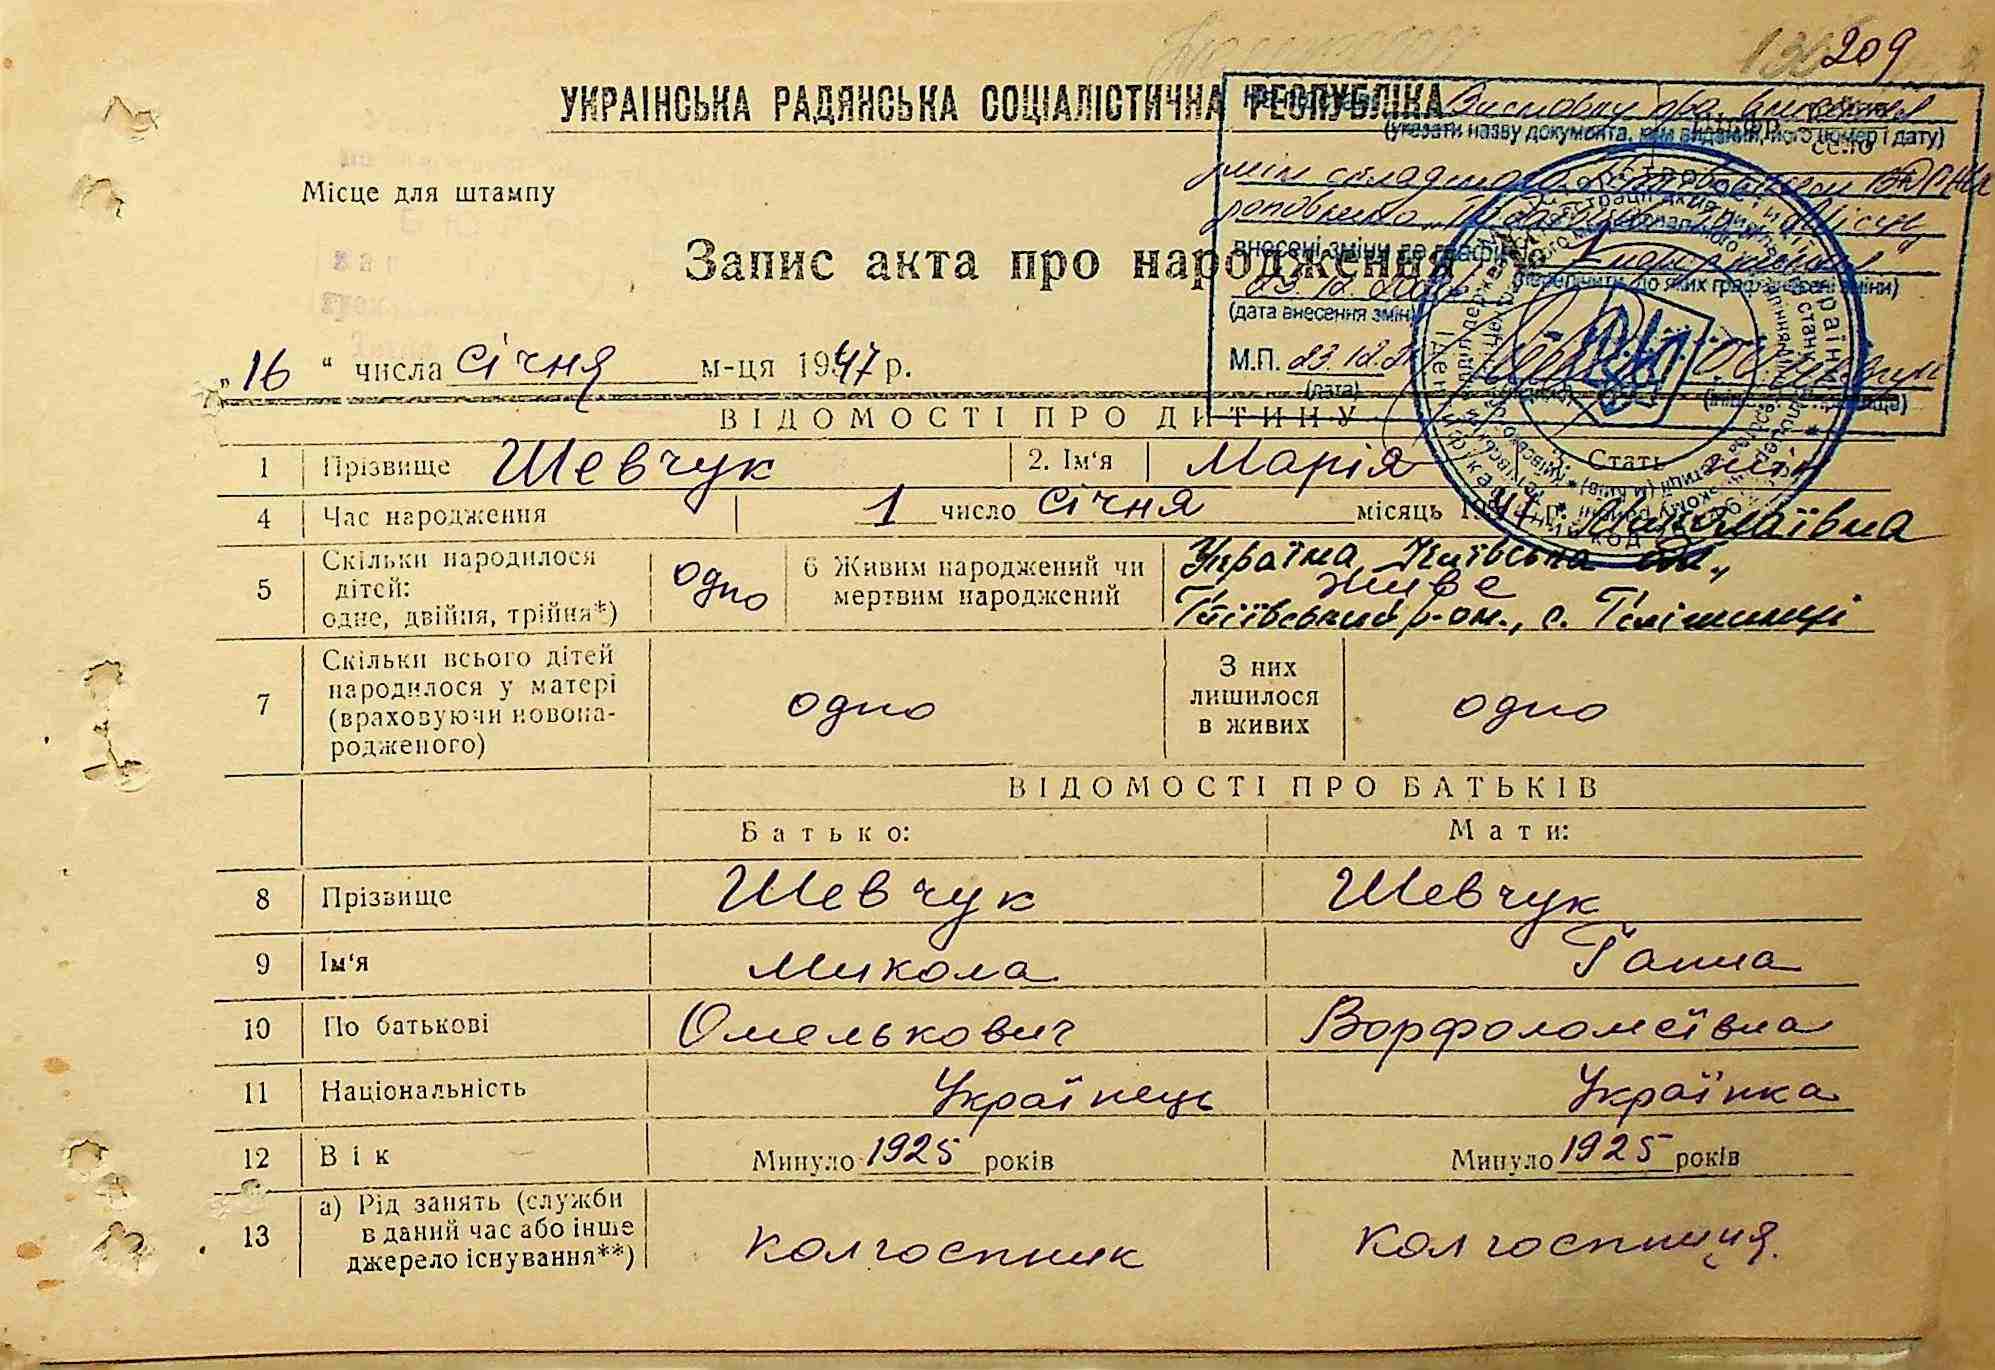 209
УКРАЇНСЬКА РАДЯНСЬКА СОЦІАЛІСТИЧНА РЕСПУБЛІКА
Висновку про внесення
(указати назву документа, ким виданий, його номер і дату)
Місце для штампу
змін складеного
Запис акта про народження №
внесені зміни до граф
(перелічити, до яких граф внесені зміни)
23.12.
(дата внесення змін)
„16“ числа січня м-ця 1947 р.
М.П. 23.12.
(дата)
ВІДОМОСТІ ПРО ДИТИНУ
1 Прізвище Шевчук 2. Ім'я Марія 3. Стать жін
4 Час народження 1 число січня місяць 1947 р. Миколаївна
5 Скільки народилося дітей: одне, двійня, трійня*) одно 6 Живим народжений чи мертвим народжений живе
Україна, Київська обл.,
р-он., с.
7 Скільки всього дітей народилося у матері (враховуючи новонародженого) одно З них лишилося в живих одно
ВІДОМОСТІ ПРО БАТЬКІВ
Батько: Мати:
8 Прізвище Шевчук Шевчук
9 Ім'я Микола Ганна
10 По батькові Омелькович Ворфоломеївна
11 Національність Українець Українка
12 Вік Минуло 1925 років Минуло 1925 років
13 а) Рід занять (служби в даний час або інше джерело існування**) колгоспник колгоспниця.